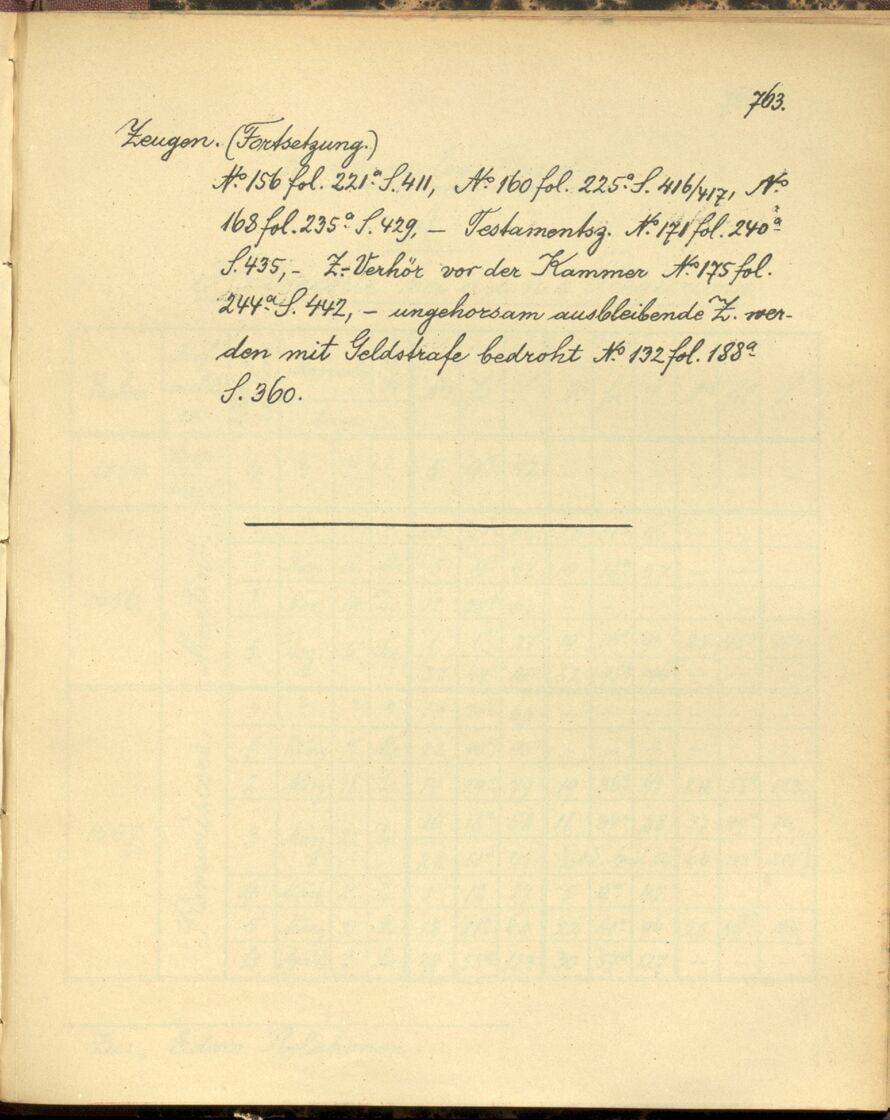 763.
Zeugen. (Fortsetzung.)
No 156 fol. 221a S. 411, No 160 fol. 225a S. 416/417, No
168 fol. 235a S. 429, — Testamentsz. No 171 fol. 240a
S. 435, — Z-Verhör vor der Kammer No 175 fol.
244a S. 442, — ungehorsam ausbleibende Z. wer-
den mit Geldstrafe bedroht No 132 fol. 188a
S. 360.